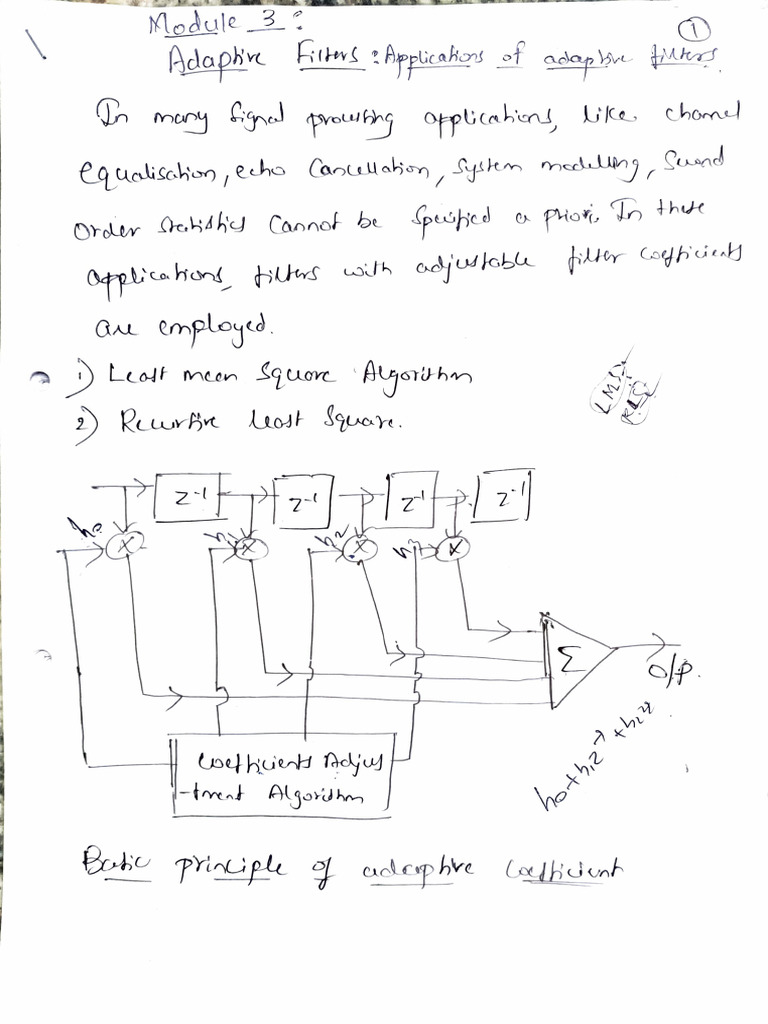 ①
Module 3:
Adaptive Filters: Applications of adaptive filters.
In many signal processing applications, like channel
equalisation, echo Cancellation, System modelling, Second
Order statistics cannot be specified a priori. In these
applications, filters with adjustable filter coefficients
are employed.
1) Least mean Square Algorithm
2) Recursive least Square.
LMS
RLS
Z⁻¹ Z⁻¹ Z⁻¹ Z⁻¹
h₀ h₁ h₂ h₃
X X X X
Σ
O/P.
h₀+h₁z⁻¹+h₂z⁻²
Coefficients Adjus
-tment Algorithm
Basic principle of adaptive Coefficient